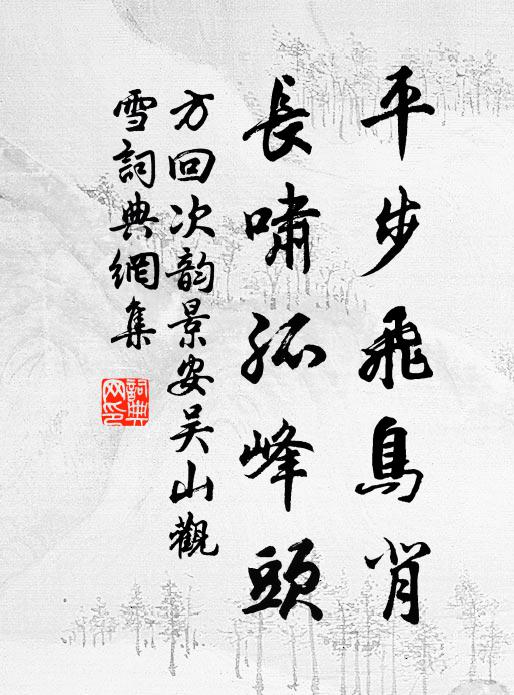 平步飛鳥背
長嘯孤峰頭
方回次韵景安吴山觀
雪詞典網集
詞典網印